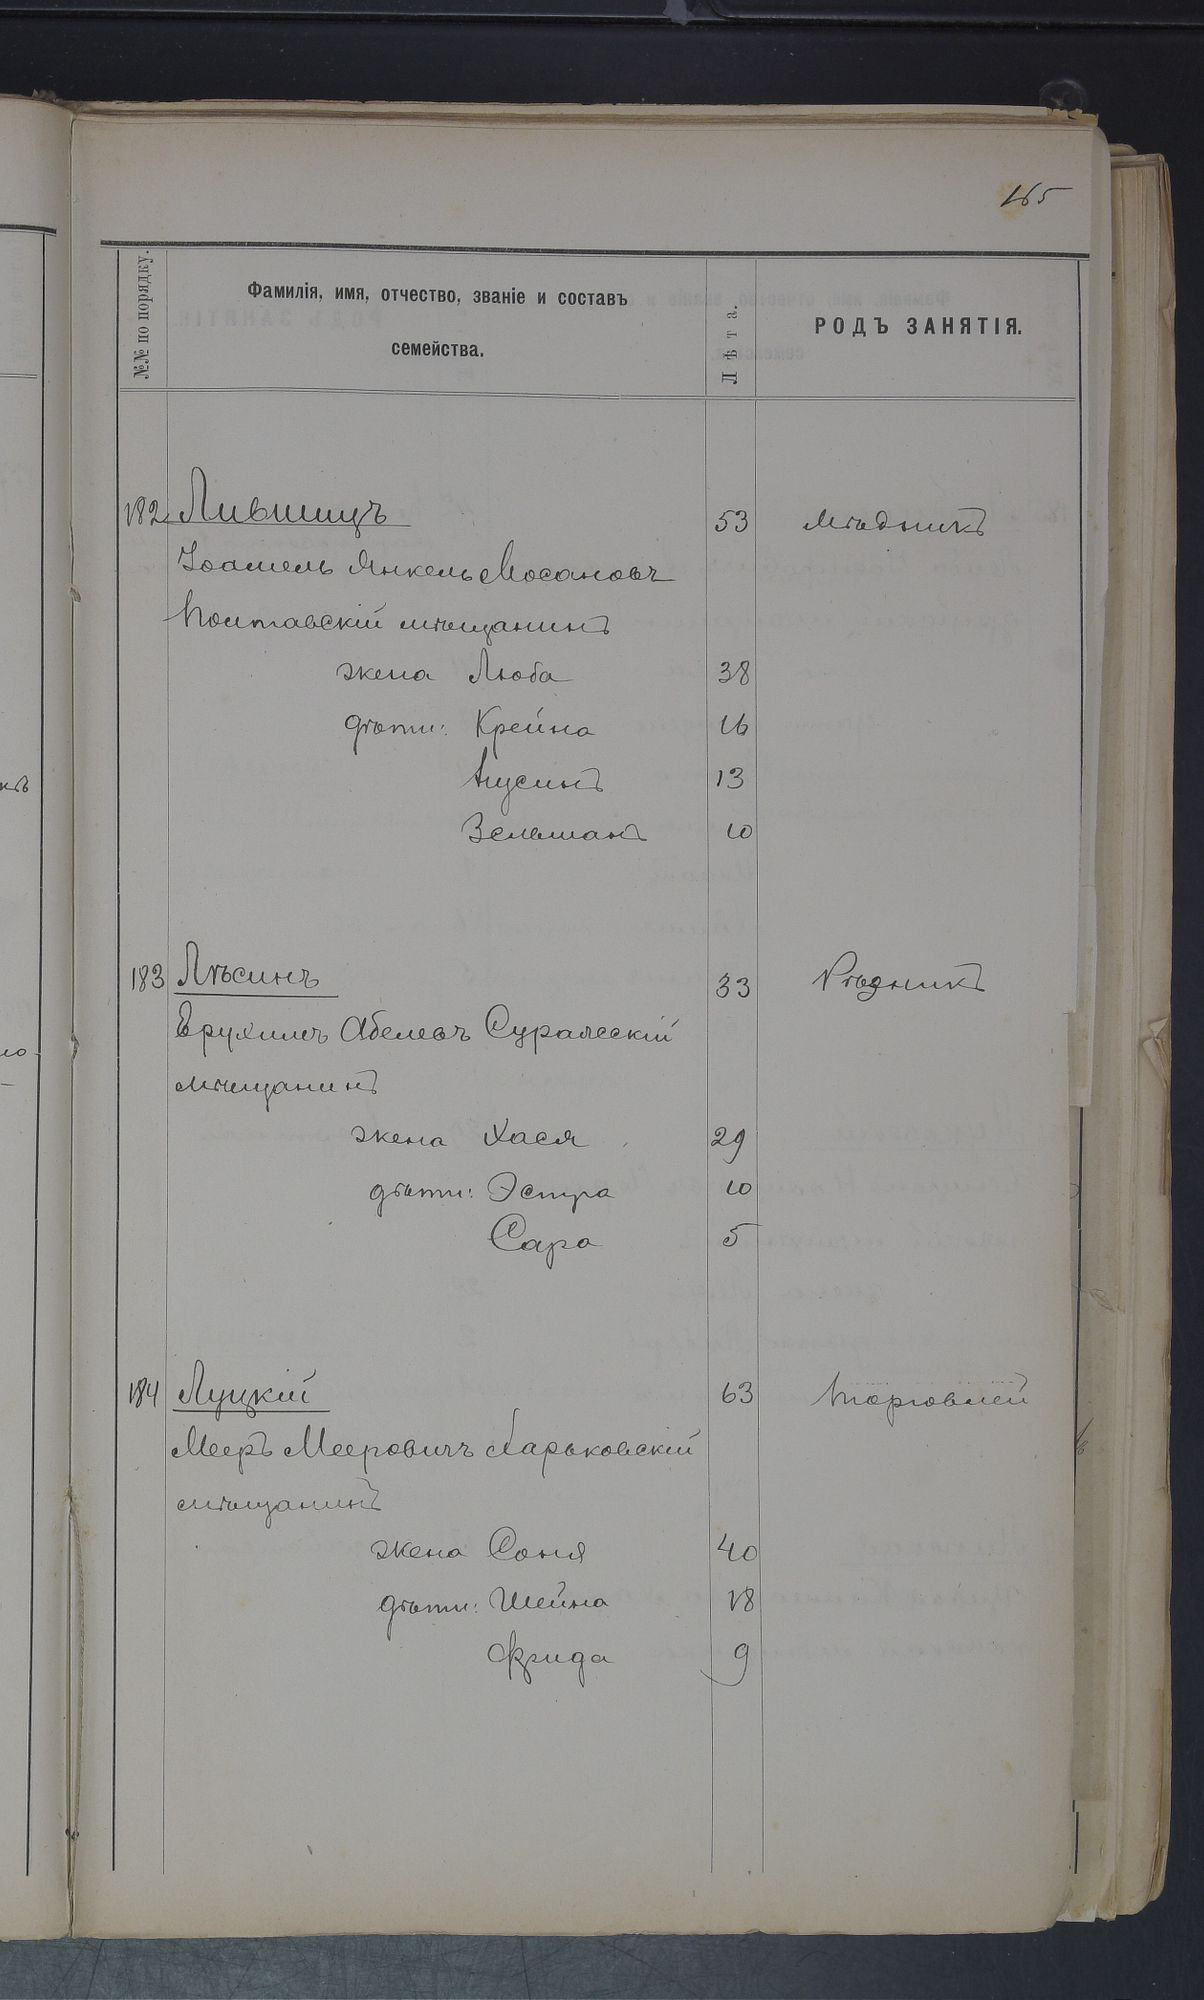 165
№№ по порядку.
Фамилія, имя, отчество, званіе и составъ
семейства.
Лѣта.
РОДЪ ЗАНЯТІЯ.
182 Лившицъ 53 мѣдникъ
Янкель
Полтавскій мѣщанинъ
жена Люба 38
дѣти: Крейна 16
Нусинъ 13
Зельманъ 10
183 Лѣсинъ 33 Рѣзникъ
Ерухимъ Абелевъ Суражскій
мѣщанинъ
жена Хася 29
дѣти: Эстра 10
Сара 5
184 Луцкій 63 Торговлей
Мееръ Мееровичъ Харьковскій
мѣщанинъ
жена Соня 40
дѣти: Шейна 18
Фрида 9